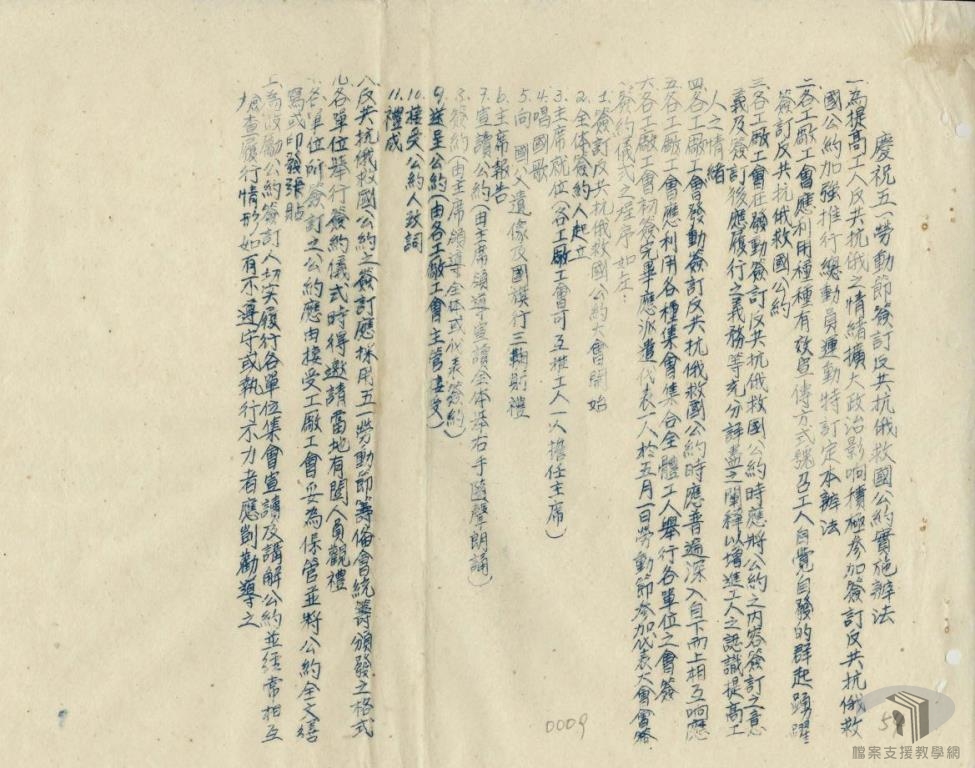 慶祝五一勞動節簽訂反共抗俄救國公約實施辦法
一、為提高工人反共抗俄之情緒擴大政治影响積極參加簽訂反共抗俄救
國公約加強推行總動員運動特訂定本辦法
二、各工廠工會應利用種種有效宣傳方式號召工人自覺自發的群起踴躍
簽訂反共抗俄救國公約
三、各工廠工會在發動簽訂反共抗俄救國公約時應將公約之內容簽訂之意
義及簽訂後應履行之義務等充分詳盡之闡釋以增進工人之認識提高工
人之情緒
四、各工廠工會發動簽訂反共抗俄救國公約時應普遍深入自下而上相互响應
五、各工廠工會應利用各種集會集合全體工人舉行各單位之會簽
六、各工廠工會初簽完畢應派遣代表一人於五月一日勞動節參加代表大會會簽
簽約儀式之程序如左：
1.簽訂反共抗俄救國公約大會開始
2.全体簽約人起立
3.主席就位(各工廠工會可互推工人一人擔任主席)
4.唱國歌
5.向國父遺像及國旗行三鞠躬禮
6.主席報告
7.宣讀公約(由主席領導宣讀全体举右手隨聲朗誦)
8.簽約(由主席領導全体或代表簽約)
9.送呈公約(由各工廠工會主管接受)
10.接受公約人致詞
11.禮成
八、反共抗俄救國公約之簽訂應採用五一勞動節籌備會統籌頒發之格式
九、各單位舉行簽約儀式時得邀請當地有関人員觀禮
各單位所簽訂之公約應由接受工廠工會妥為保管並將公約全文繕
寫或印發張貼
為激勵公約簽訂人切实履行各單位集會宣讀及講解公約並経常相互
檢查履行情形如有不遵守或執行不力者應剴勸導之
0009
檔案支援教學網